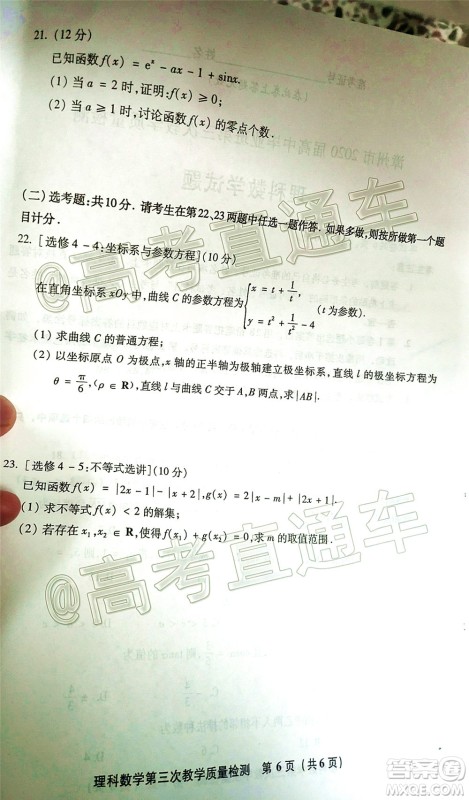 21. (12 分)
已知函数 f(x) = eˣ - ax - 1 + sinx.
(1) 当 a = 2 时,证明:f(x) ≥ 0;
(2) 当 a ≥ 1 时,讨论函数 f(x) 的零点个数.
(二) 选考题:共 10 分. 请考生在第 22、23 两题中任选一题作答. 如果多做,则按所做第一个题
目计分.
22. [选修 4-4:坐标系与参数方程](10 分)
在直角坐标系 xOy 中,曲线 C 的参数方程为 { x = t + 1/t, y = t² + 1/t² - 4 (t 为参数).
(1) 求曲线 C 的普通方程;
(2) 以坐标原点 O 为极点,x 轴的正半轴为极轴建立极坐标系,直线 l 的极坐标方程为
θ = π/6,(ρ ∈ R),直线 l 与曲线 C 交于 A,B 两点,求|AB|.
23. [选修 4-5:不等式选讲](10 分)
已知函数 f(x) = |2x-1| - |x+2|,g(x) = 2|x-m| + |2x+1|.
(1) 求不等式 f(x) < 2 的解集;
(2) 若存在 x₁,x₂ ∈ R,使得 f(x₁) + g(x₂) = 0,求 m 的取值范围.
@高考直通车
@高考直通车
理科数学第三次教学质量检测 第 6 页 (共 6 页)
答案圈
MXQE.COM